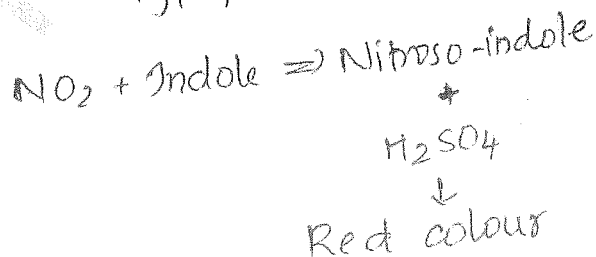 NO2 + Indole => Nitroso-indole
+
H2SO4
↓
Red colour